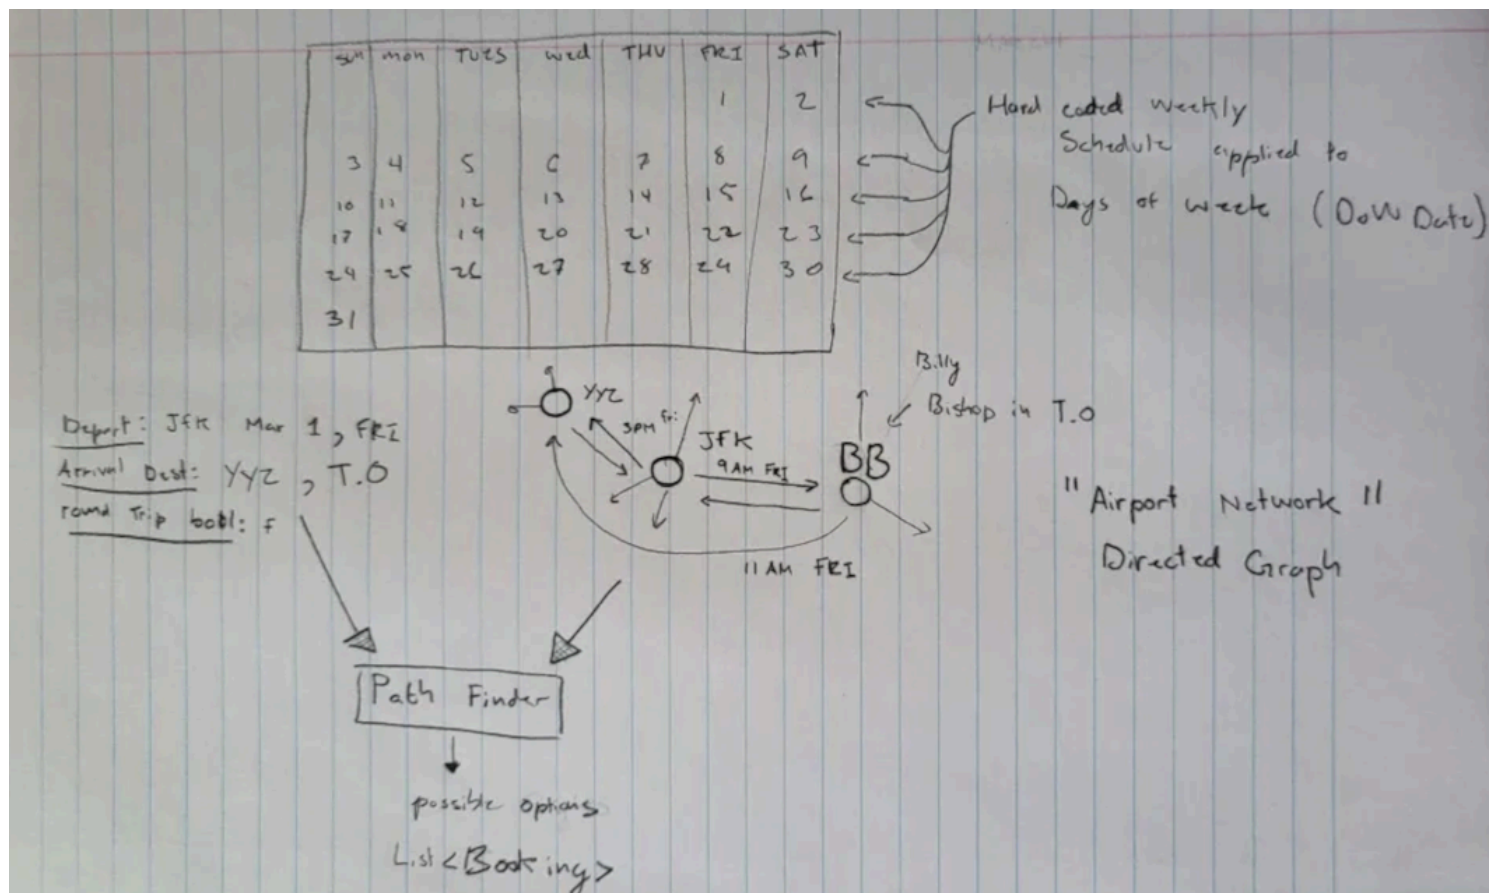 Sun mon TUES wed THU FRI SAT
1 2
3 4 5 6 7 8 9
10 11 12 13 14 15 16
17 18 19 20 21 22 23
24 25 26 27 28 24 30
31
Hard coded weekly
Schedule applied to
Days of week (DoW Date)
Depart: JFK Mar 1, FRI
Arrival Dest: YYZ, T.O
round Trip bool: f
YYZ
3PM Fri
JFK
9AM FRI
11 AM FRI
BB
Billy
Bishop in T.O
"Airport Network"
Directed Graph
Path Finder
possible options
List<Booking>